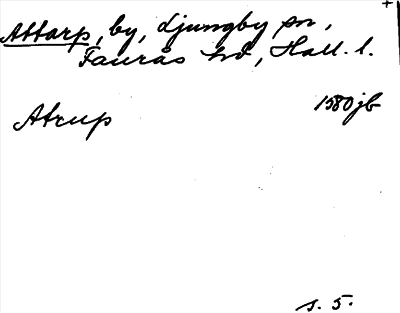 Attarp, by, Ljungby sn,
Faurås hd, Hall. l.
Atrup 1580 jb
s. 5.